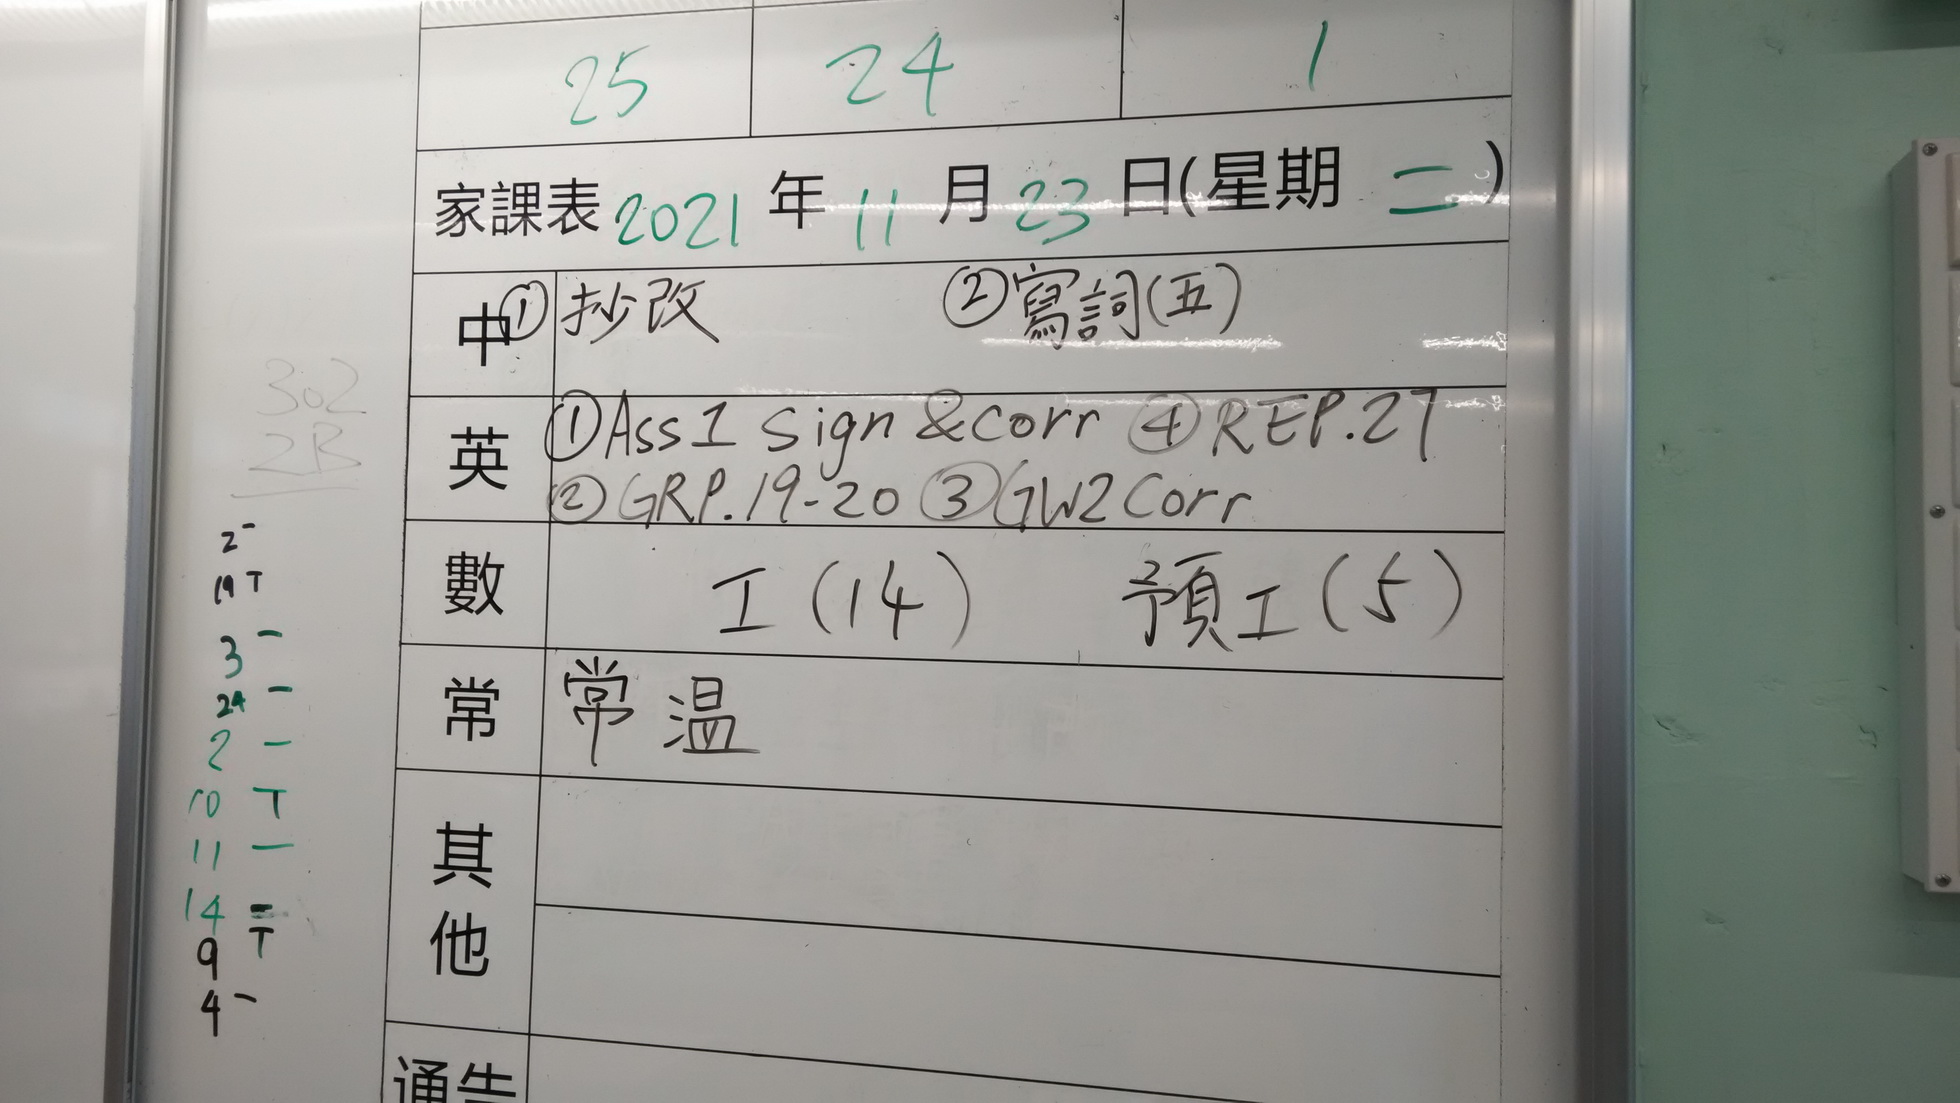 25 24 1
家課表 2021 年 11 月 23 日(星期 二)
中 ①抄改 ②寫詞(五)
英 ①Ass1 Sign & corr ④REP.27
②GRP.19-20 ③GW2 Corr
數 工(14) 預工(5)
常 常 温
其他
通告
302
2B
2 -
19 T
3 -
24 -
2 -
10 T
11 -
14 =
9 T
4 -